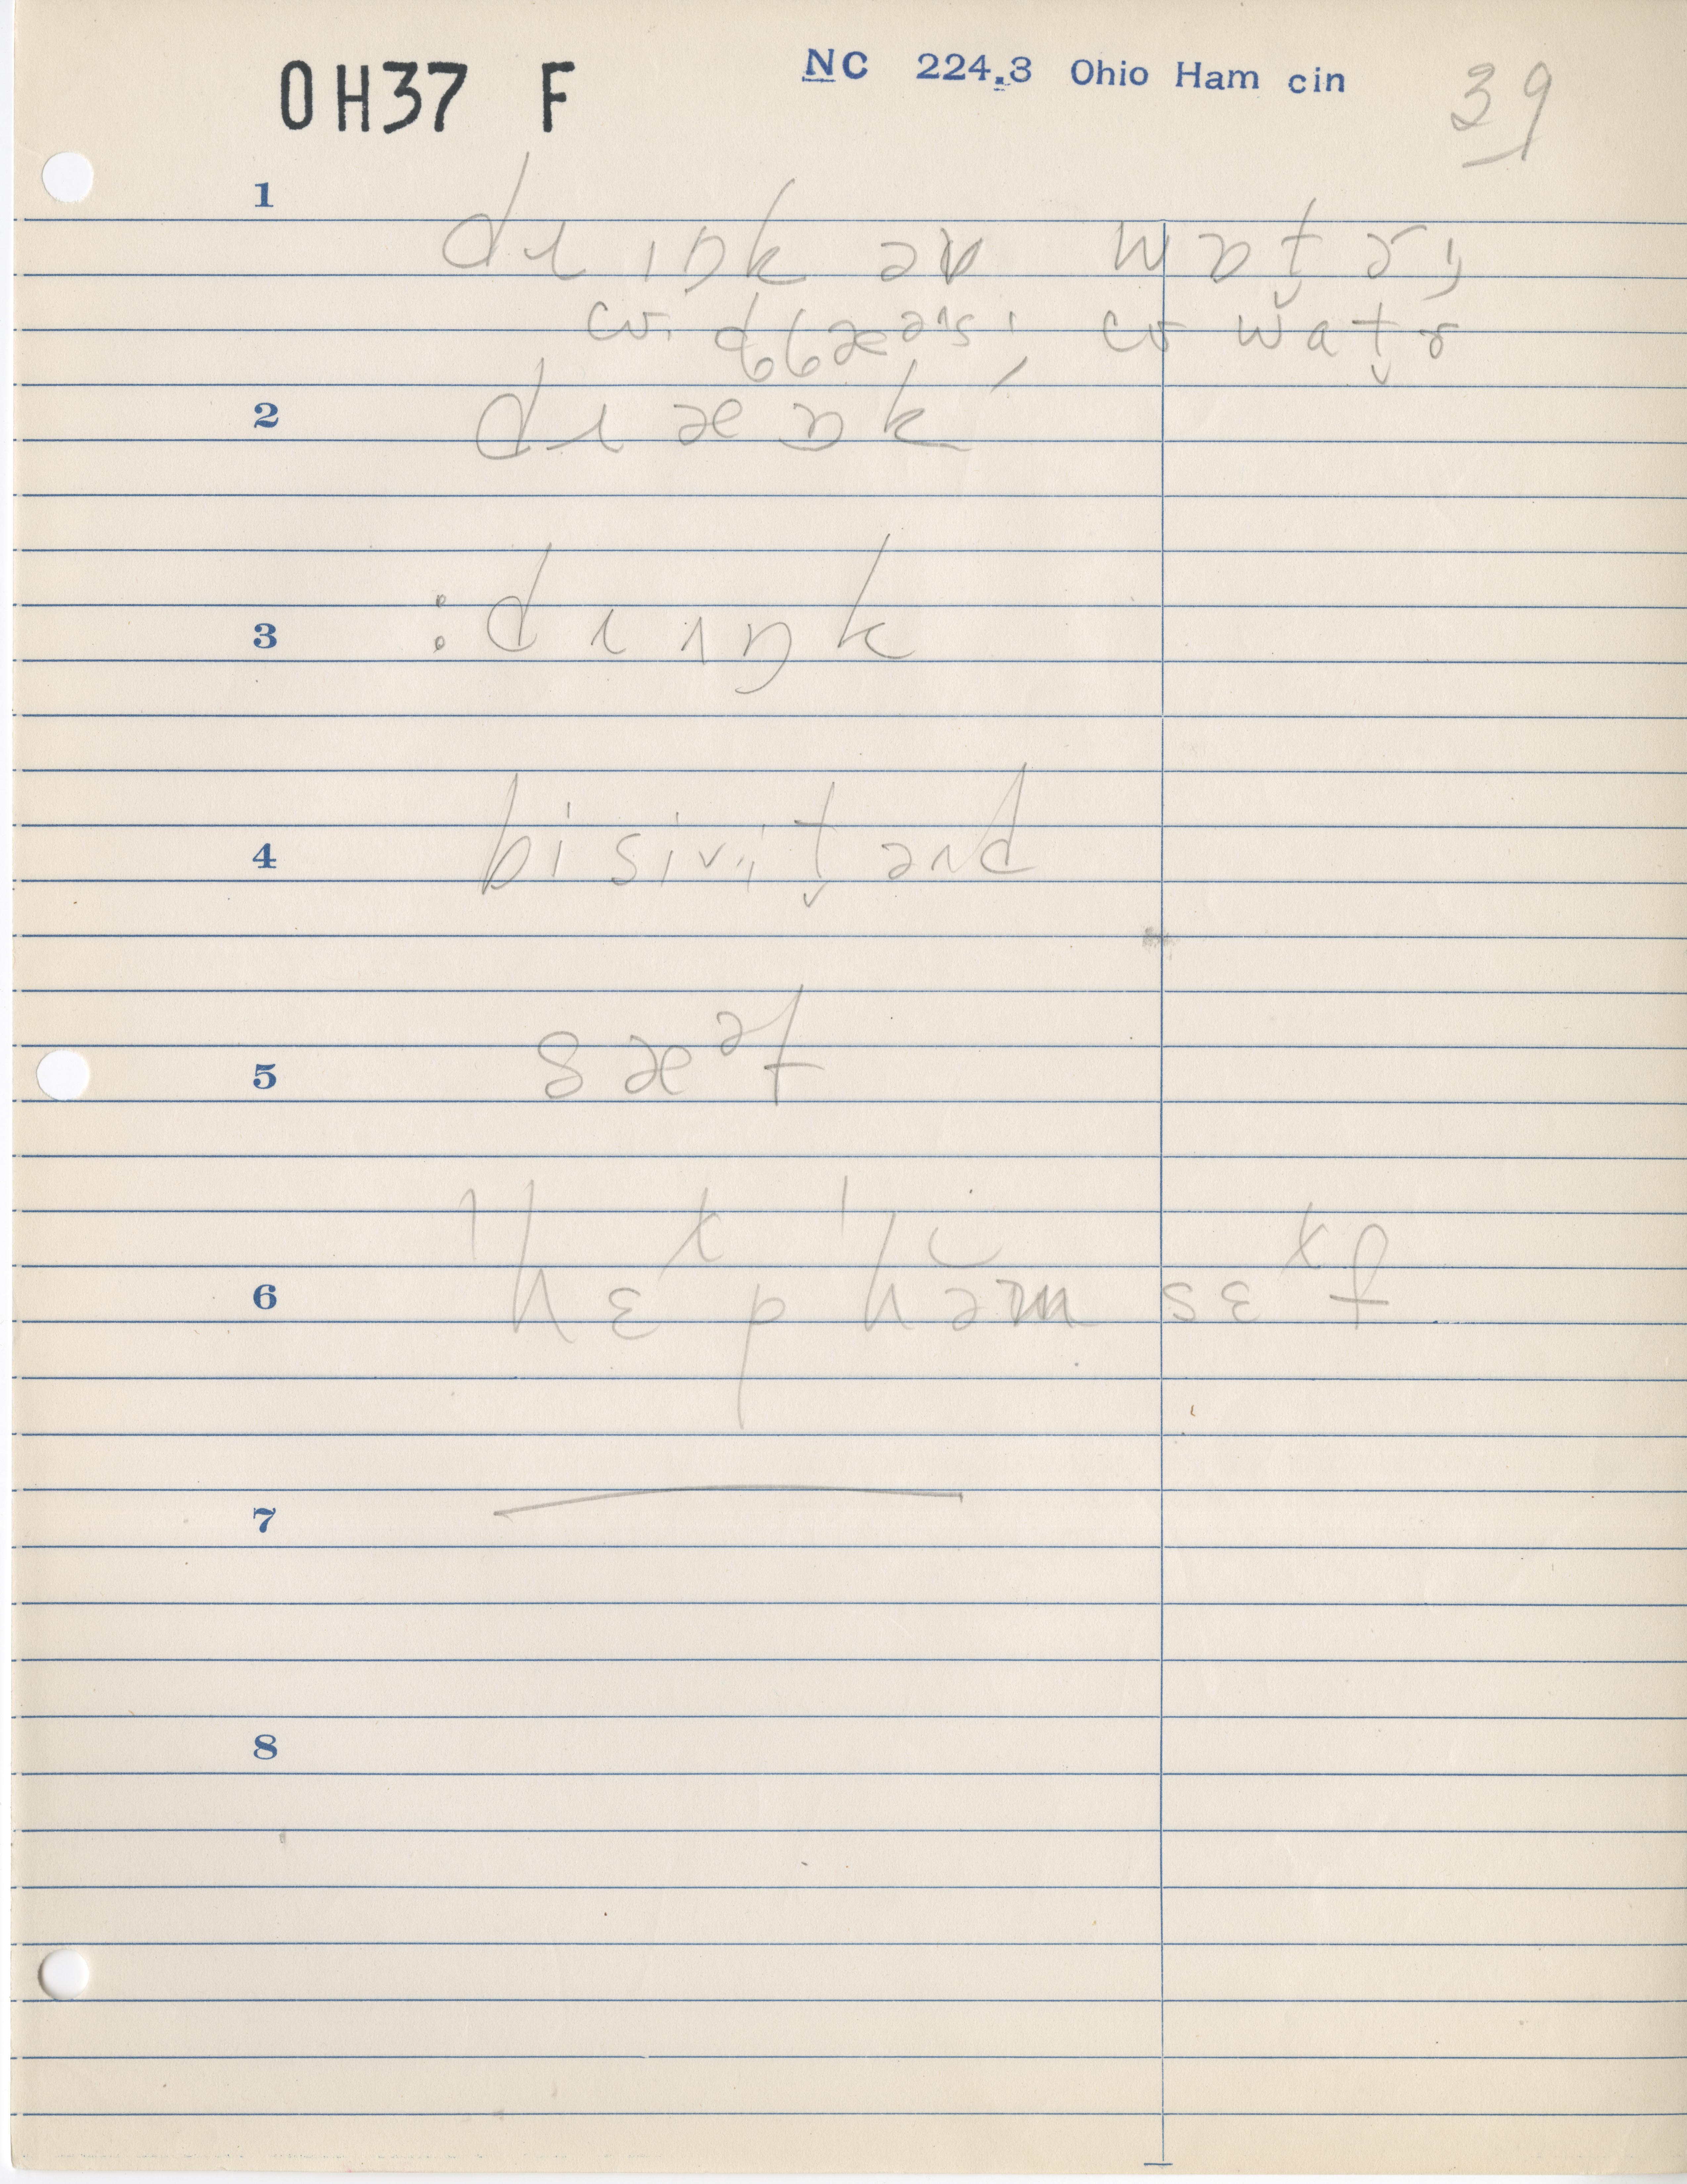 OH37 F NC 224.3 Ohio Ham cin 39
1 dɹɪŋk əv wɒt̬ɚ,
cv. ; cv wat̬ɚ
2 dɹæŋk
3 :dɹɪŋk
4 bi sivit̬ənd
5 sæᵊf
6 hɛɫp həm sɛɫf
7
8